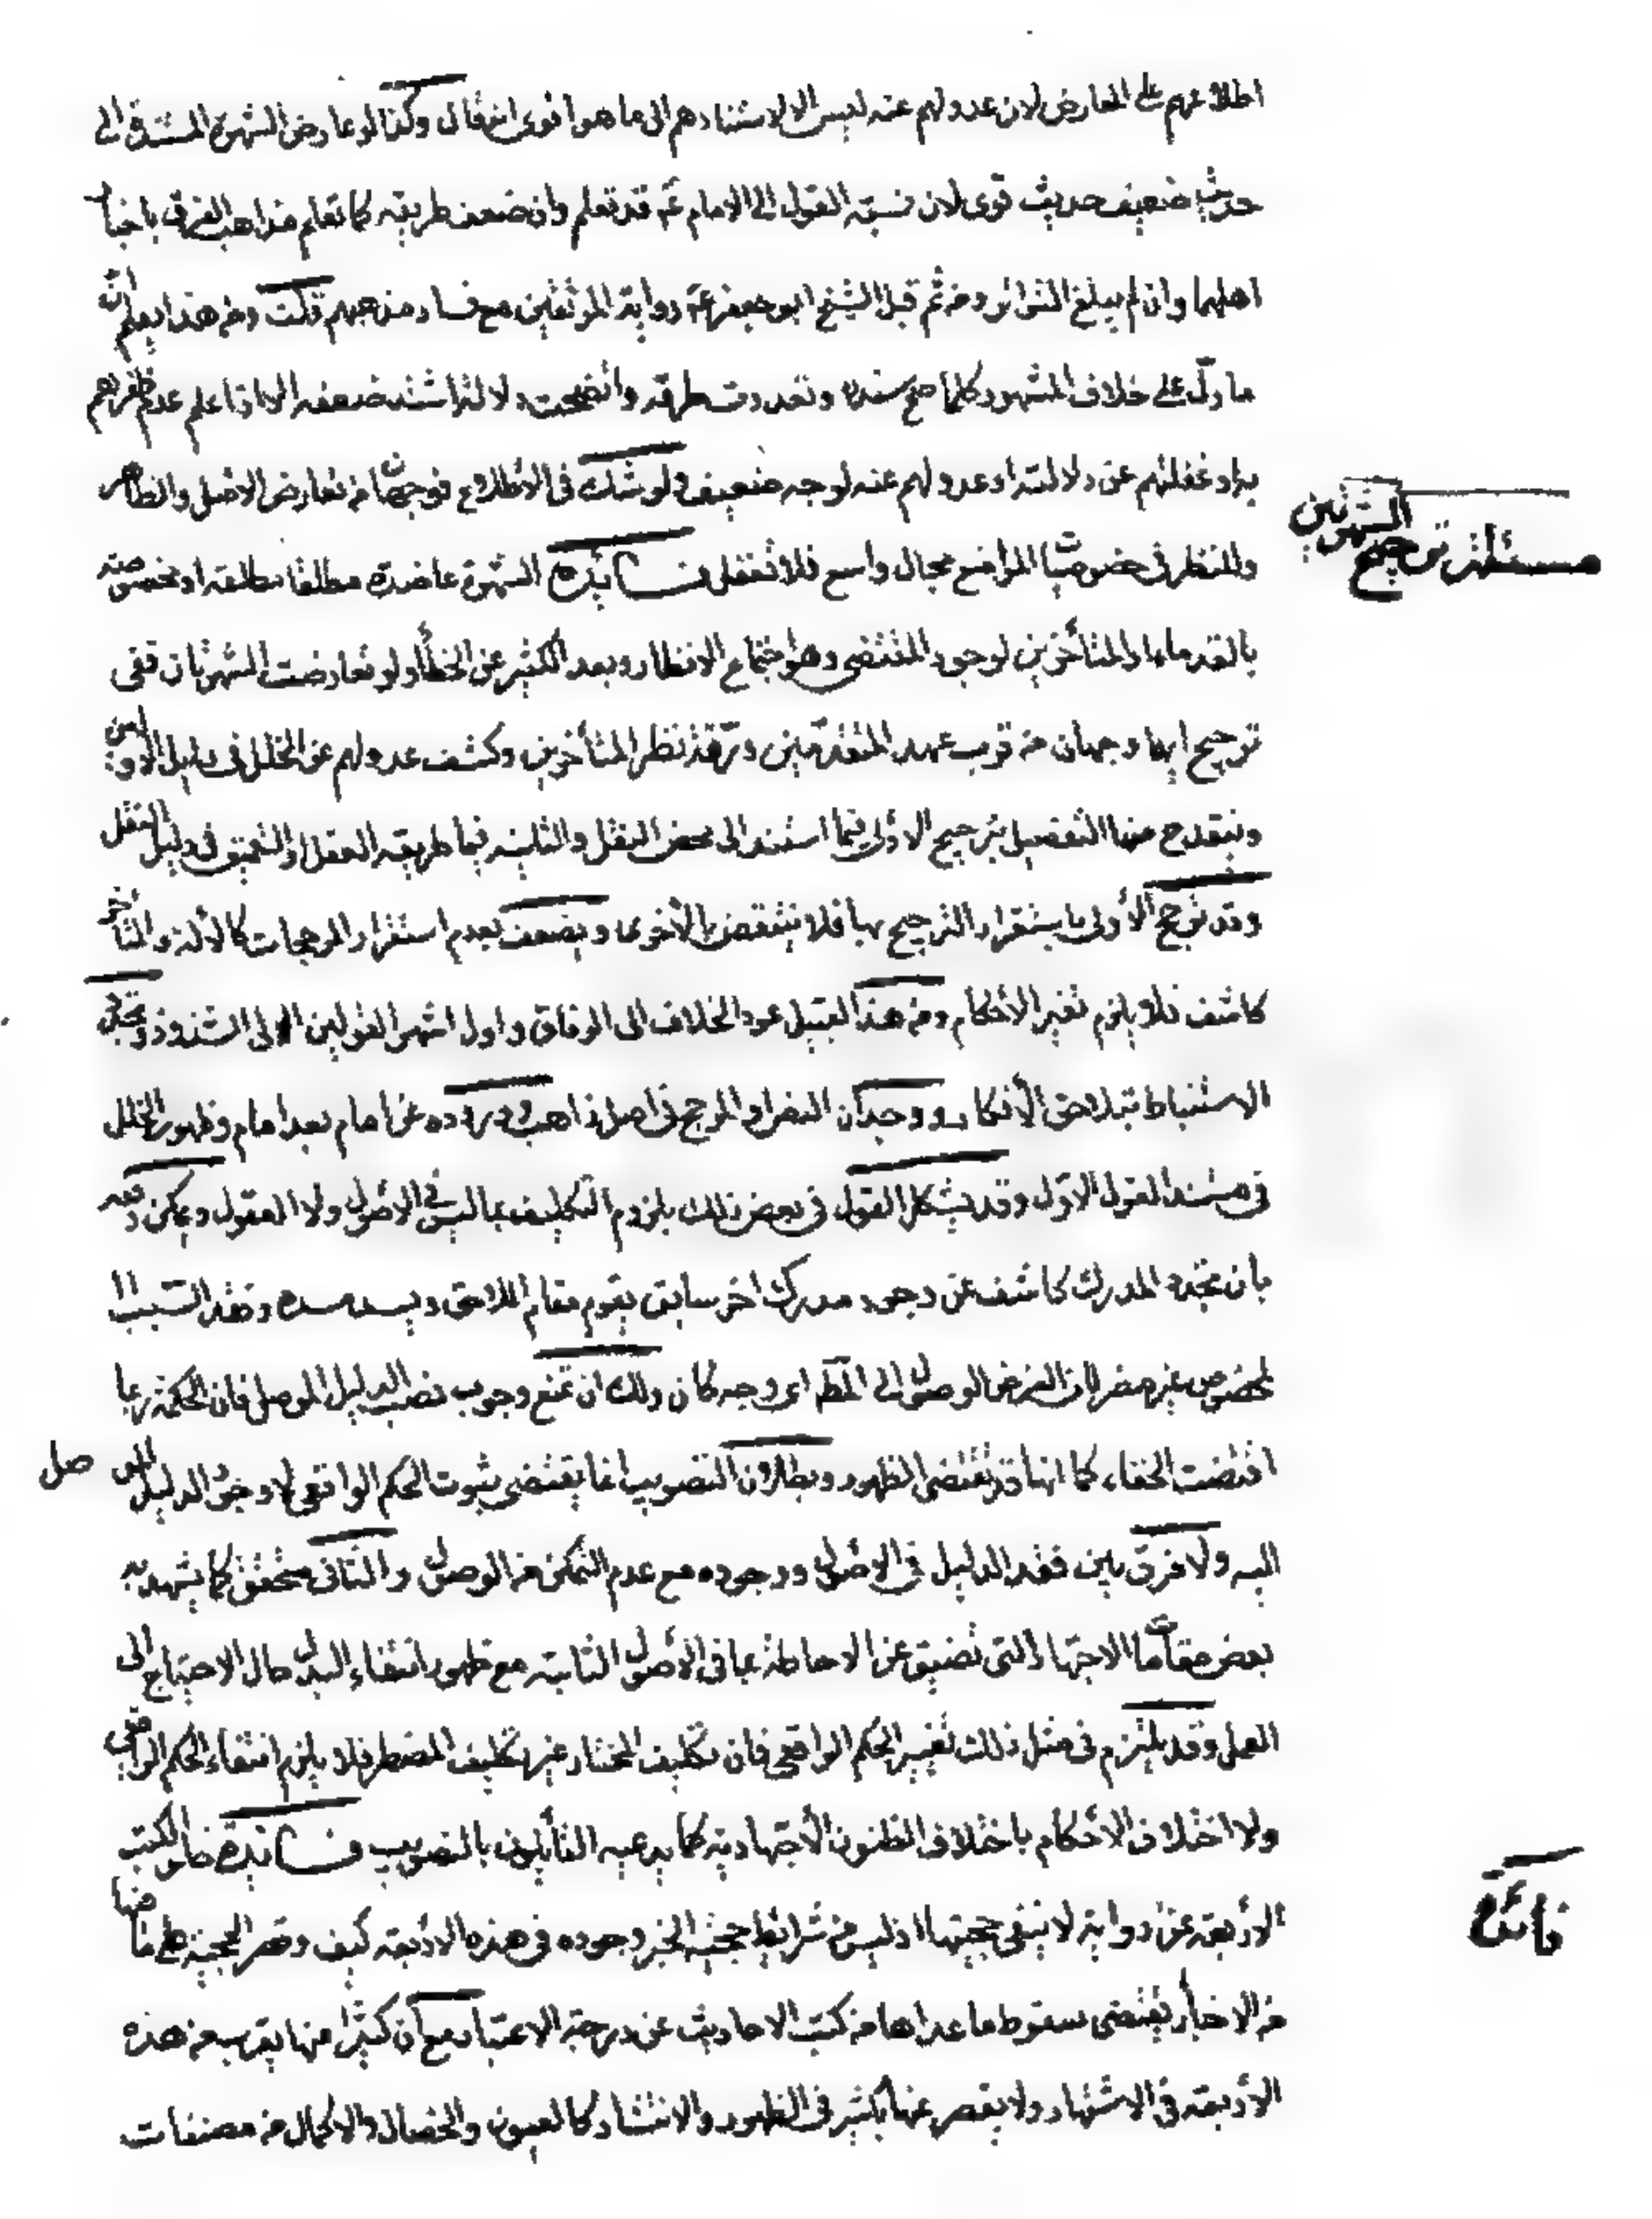 اطلاعهم على المعارض لان عدولهم عنه ليس الا لاستنادهم الى ما هو اقوى انتقال وكذا لو عارض الشهرة المستندة الى
حديث ضعيف حديث قوى لان نسبة القول الى الامام عم قد تعلم وان ضعف طريقه كما تعلم مذاهب الفرق باخبار
اهلها وان لم يبلغ التواتر ومن ثم قبل الشيخ ابو جعفر رواية الموثقين مع فساد مذهبهم قلت ومن هذا يعلم ان
ما دل على خلاف المشهور كلما صح سنده وتعددت طرقه واتضحت دلالته اشتد ضعفه الا اذا علم عدم ظفرهم
به او غفلتهم عن دلالته او عدولهم عنه لوجه ضعيف ولو شك في الاطلاع فوجهان من تعارض الاصل والظاهر
وللنظر في خصوصيات المواضع مجال واسع فلا تغفل فــائدة الشهرة عاضدة مطلقا مطلقة او مخصوصة
مسئلة ترجيح الشهرتين
بالقدماء او المتأخرين لوجود المقتضى وهو اجتماع الانظار وبعد الكثير عن الخطأ ولو تعارضت الشهرتان ففى
ترجيح ايها وجهان من قرب عهد المتقدمين ودقة نظر المتأخرين وكشف عدولهم عن الخلل فى دليل الاولين
وينقدح منها التفصيل بترجيح الاولى فيما استند الى محض النقل والثانية فيما طريقه العقل او التعميق فى دليل النقل
وقد ترجح الأولى باستقرار الترجيح بها فلا ينتقض بالأخرى ويضعف بعدم استقرار المرجحات كالأدلة والمتأخر
كاشف فلا يلزم تغير الأحكام ومن هذا القبيل عود الخلاف الى الوفاق واول اشهر القولين الى الشذوذ وتجدد
الاستنباط بتلاحق الأفكار ووجدان النص او المرجح فى اصل ذاهب ووروده عن امام بعد امام وظهور الخلل
فى مستند القول الاول وقد يشكل القول فى بعض ذلك بلزوم التكليف بما ليس فى الاصول ولا العقول ويمكن دفعه
بان تجدد المدرك كاشف عن وجود مدرك اخر سابق يقوم مقام اللاحق ويسد مسده وفقد السبب
المخصوص غير مضر لان الغرض الوصول الى المط اى وجه كان ولك ان تمنع وجوب نصب الدليل الموصل فان الحكمة ربما
اقتضت الخفاء كما انها قد تقتضى الظهور وبطلان التصويب انما يقتضى ثبوت الحكم الواقعى لا وجود الدليل الموصل
اليه ولا فرق بين فقد الدليل فى الاصول ووجوده مع عدم التمكن من الوصول والثانى متحقق كما يشهد به
بعض مقامات الاجتهاد التى تضيق عن الاحاطة بما فى الأصول الثابتة مع ظهور انتفاء البدل حال الاحتياج الى
العمل وقد يلتزم فى مثل ذلك تغيير الحكم الواقعى فان تكليف المختار غير تكليف المضطر فلا يلزم انتفاء الحكم الواقعى
ولا اختلاف الاحكام باختلاف الظنون الأجتهادية كما يدعيه القائلون بالتصويب فــائدة خلو الكتب
الأربعة عن رواية لا ينفى حجيتها اذ ليس من شرائط حجية الخبر وجوده فى هذه الاربعة كيف وقصر الحجية على ما فيها
فائدة
من الاخبار يقتضى سقوط ما عداها من كتب الاحاديث عن درجة الاعتبار مع ان كثيرا منها يقرب من هذه
الأربعة فى الاشتهار ولا يقصر عنها بكثير فى الظهور والانتشار كالعيون والخصال والاكمال من مصنفات